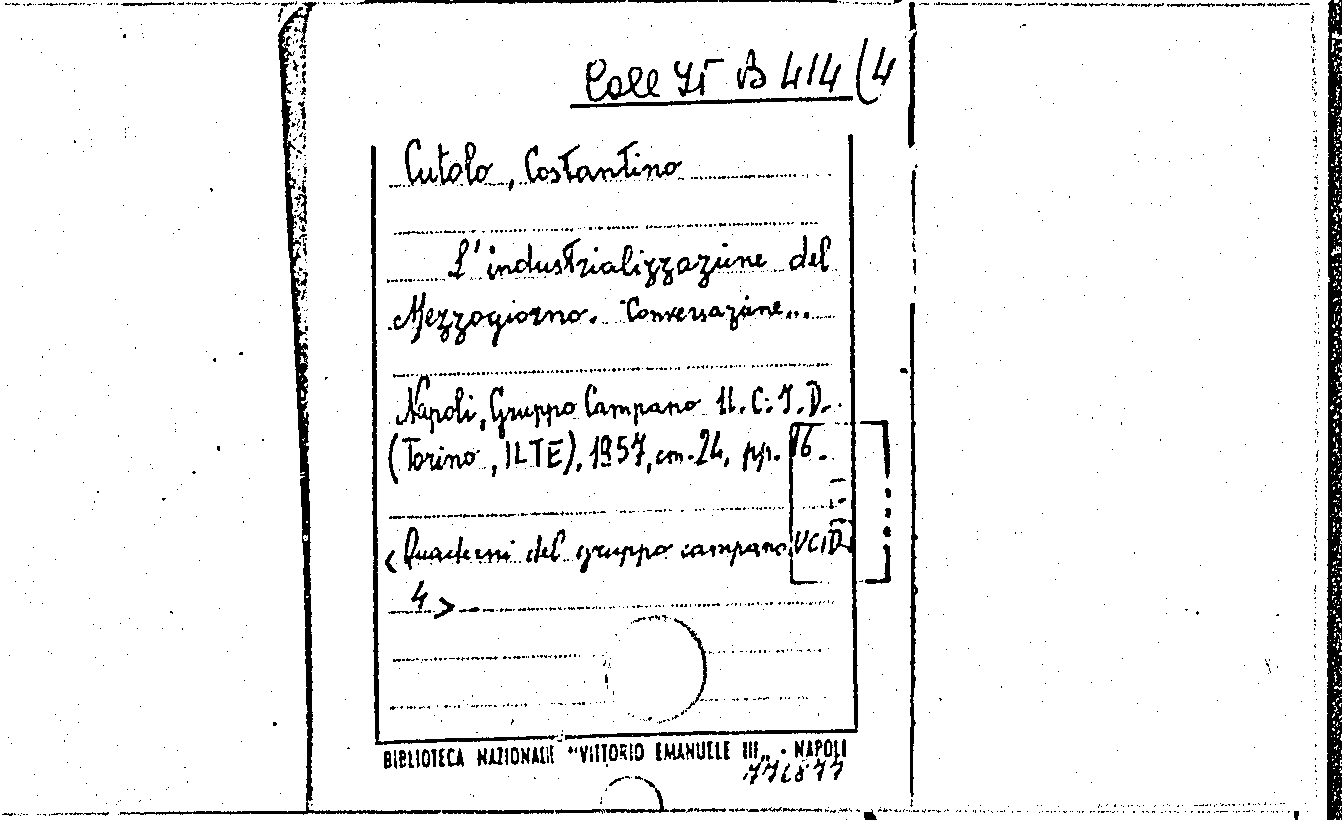 Coll It B 414 (4
Cutolo, Costantino
L'industrializzazione del
Mezzogiorno. Conversazione...
Napoli, Gruppo Campano U.C.I.D.
(Torino, ILTE), 1957, cm. 24, pp. 16.
<Quaderni del gruppo campano UCID
4>
BIBLIOTECA NAZIONALE "VITTORIO EMANUELE III„ - NAPOLI